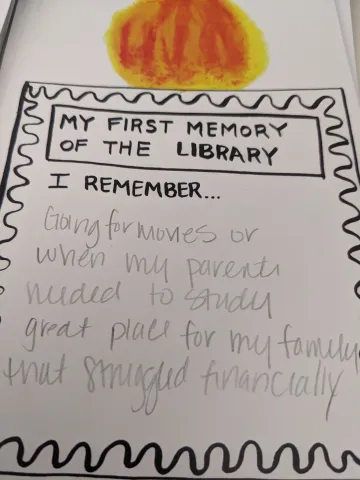 MY FIRST MEMORY
OF THE LIBRARY
I REMEMBER...
Going for movies or
when my parents
needed to study
great place for my family
that struggled financially